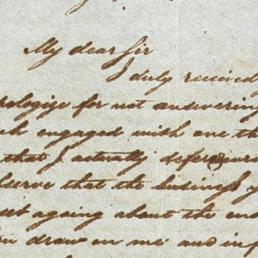 My dear Sir
I duly received
apologize for not answering
engaged with one th
that I actually
observe that the business y
again about the end
draw on me and inf